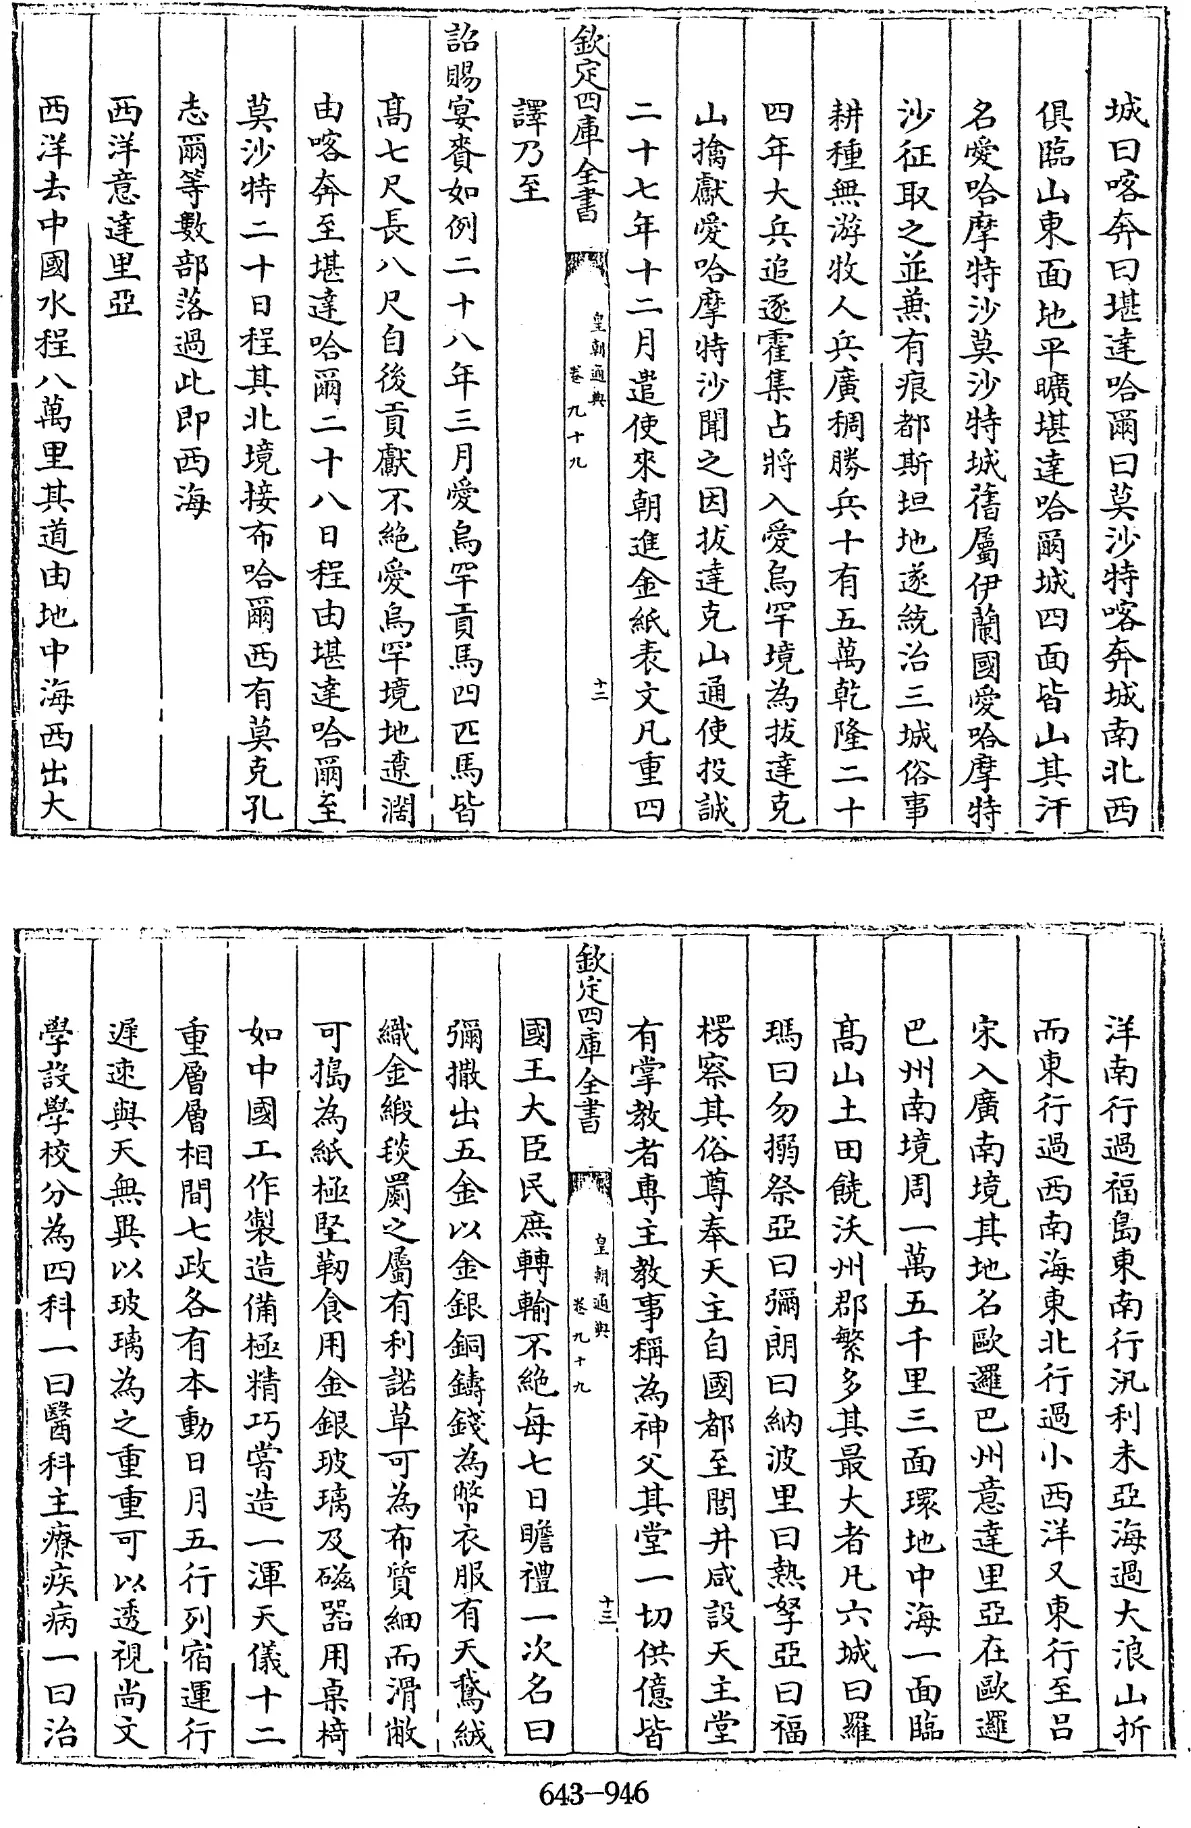 城曰喀奔曰堪達哈爾曰莫沙特喀奔城南北西
俱臨山東面地平曠堪達哈爾城四面皆山其汗
名愛哈摩特沙莫沙特城舊屬伊蘭國愛哈摩特
沙征取之並兼有痕都斯坦地遂統治三城俗事
耕種無游牧人兵廣稠勝兵十有五萬乾隆二十
四年大兵追逐霍集占將入愛烏罕境為拔達克
山擒獻愛哈摩特沙聞之因拔達克山通使投誠
二十七年十二月遣使來朝進金紙表文凡重四
欽定四庫全書
皇朝通典
卷九十九
十二
譯乃至
詔賜宴賚如例二十八年三月愛烏罕貢馬四匹馬皆
高七尺長八尺自後貢獻不絶愛烏罕境地遼濶
由喀奔至堪達哈爾二十八日程由堪達哈爾至
莫沙特二十日程其北境接布哈爾西有莫克孔
志爾等數部落過此即西海
西洋意達里亞
西洋去中國水程八萬里其道由地中海西出大
洋南行過福島東南行汎利未亞海過大浪山折
而東行過西南海東北行過小西洋又東行至呂
宋入廣南境其地名歐邏巴州意達里亞在歐邏
巴州南境周一萬五千里三面環地中海一面臨
高山土田饒沃州郡繁多其最大者凡六城曰羅
瑪曰勿搦祭亞曰彌朗曰納波里曰熱孥亞曰福
楞察其俗尊奉天主自國都至閭井咸設天主堂
有掌教者專主教事稱為神父其堂一切供億皆
欽定四庫全書
皇朝通典
卷九十九
十三
國王大臣民庶轉輸不絶每七日瞻禮一次名曰
彌撒出五金以金銀銅鑄錢為幣衣服有天鵞絨
織金緞毯罽之屬有利諾草可為布質細而滑敝
可搗為紙極堅韌食用金銀玻璃及磁器用桌椅
如中國工作製造備極精巧嘗造一渾天儀十二
重層層相間七政各有本動日月五行列宿運行
遲速與天無異以玻璃為之重重可以透視尚文
學設學校分為四科一曰醫科主療疾病一曰治
643-946